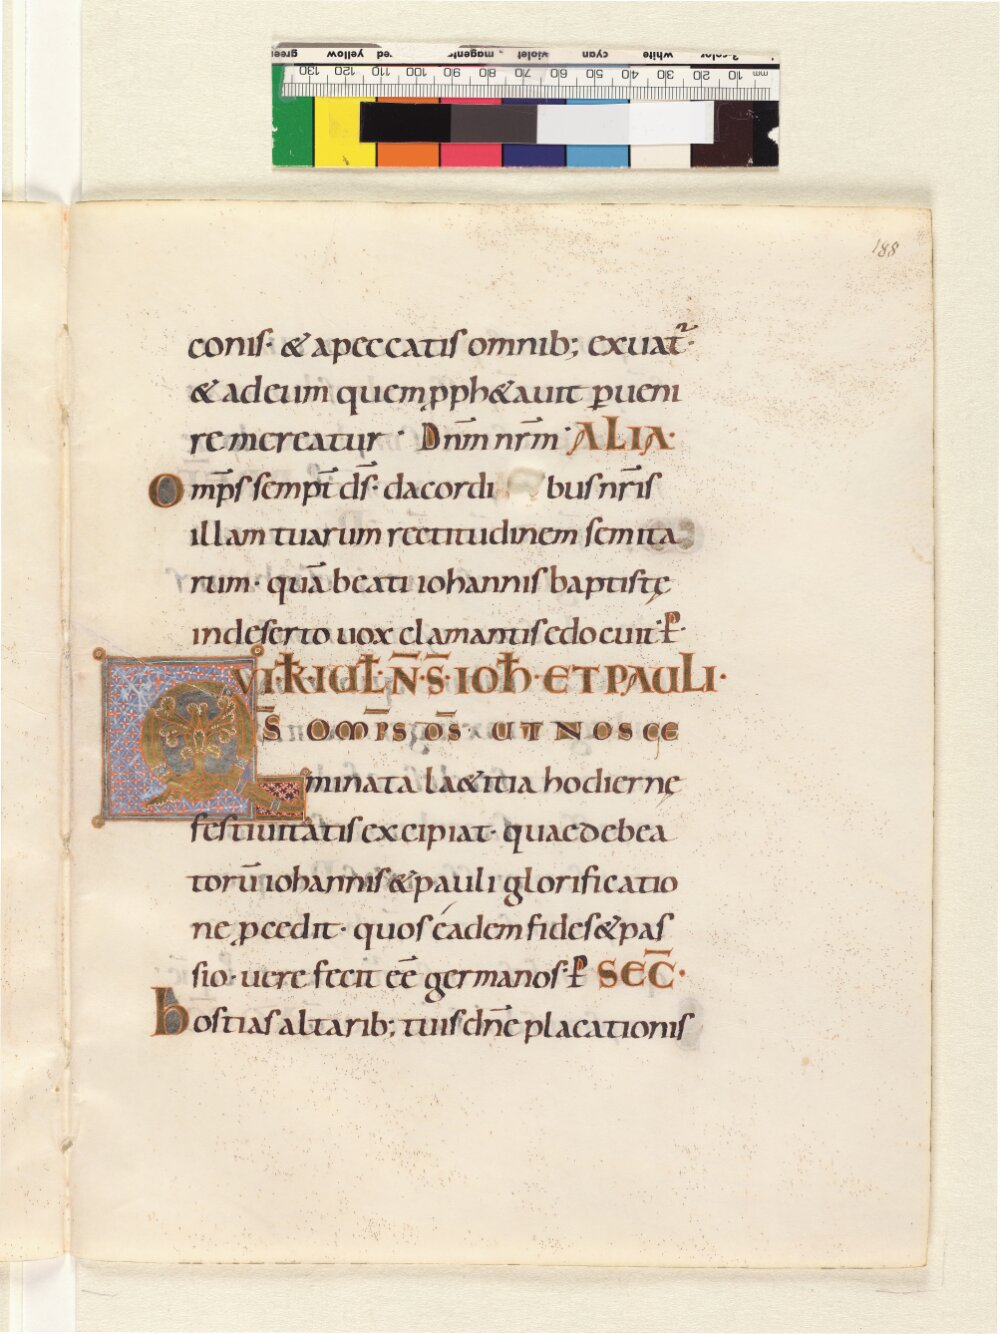 green yellow red magenta violet cyan white 3-color
130 120 110 100 90 80 70 60 50 40 30 20 10 mm
188
conis· & apeccatis omnib; exuat̄·
& adeum quem pph&auit pueni
re mereatur· Dn̄m nr̄m· ALIA·
Omp̄s sempīt ds̄· da cordi bus nr̄is
illam tuarum rectitudinem semita
rum· quā beati iohannis baptistę
indeserto uox clamantis edocuit· P̄·
VI·K̄·IUL̄·N̄·S̄·IOH̄·ET PAULI·
Q̄S OMP̄S DS̄· UT NOS GE
minata la&itia hodiernę
festiuitatis excipiat· quae de bea
torū iohannis & pauli glorificatio
ne pcedit· quos eadem fides & pas
sio· uere fecit eē germanos· P̄ SEC̄·
hostias altarib; tuis dn̄e placationis